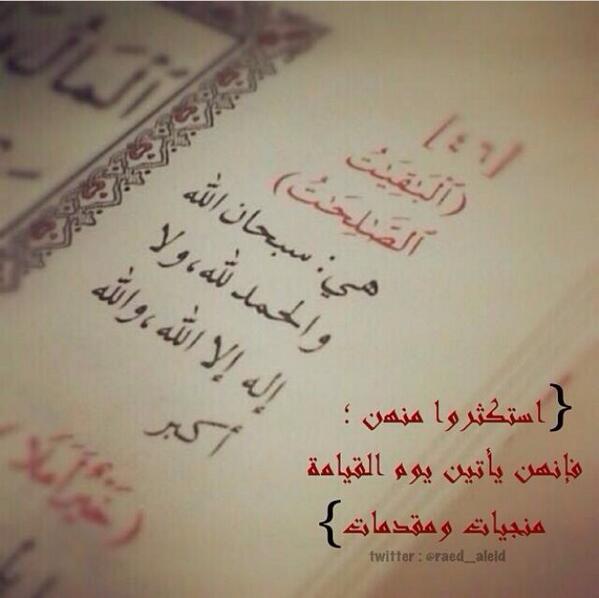 ٱلْمَالُ
[٤٦]
(ٱلْبَٰقِيَٰتُ
ٱلصَّٰلِحَٰتُ)
هي: سبحان الله
والحمد لله، ولا
إله إلا الله، والله
أكبر
(خَيْرٌ أَمَلًا)
{استكثروا منهن ؛
فإنهن يأتين يوم القيامة
منجيات ومقدمات}
twitter : @raed__aleid